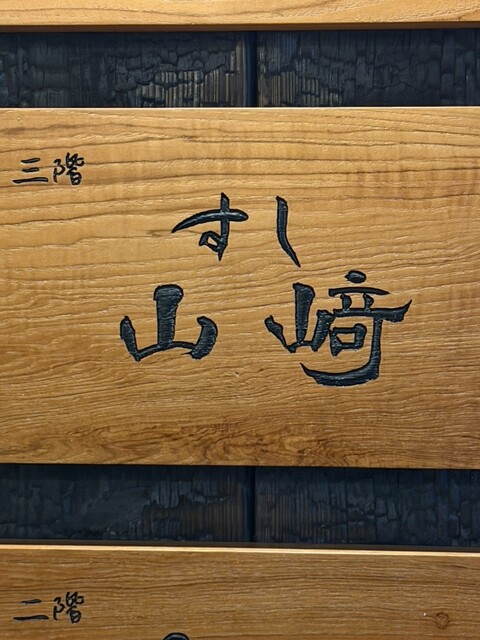 三階
すし
山﨑
二階